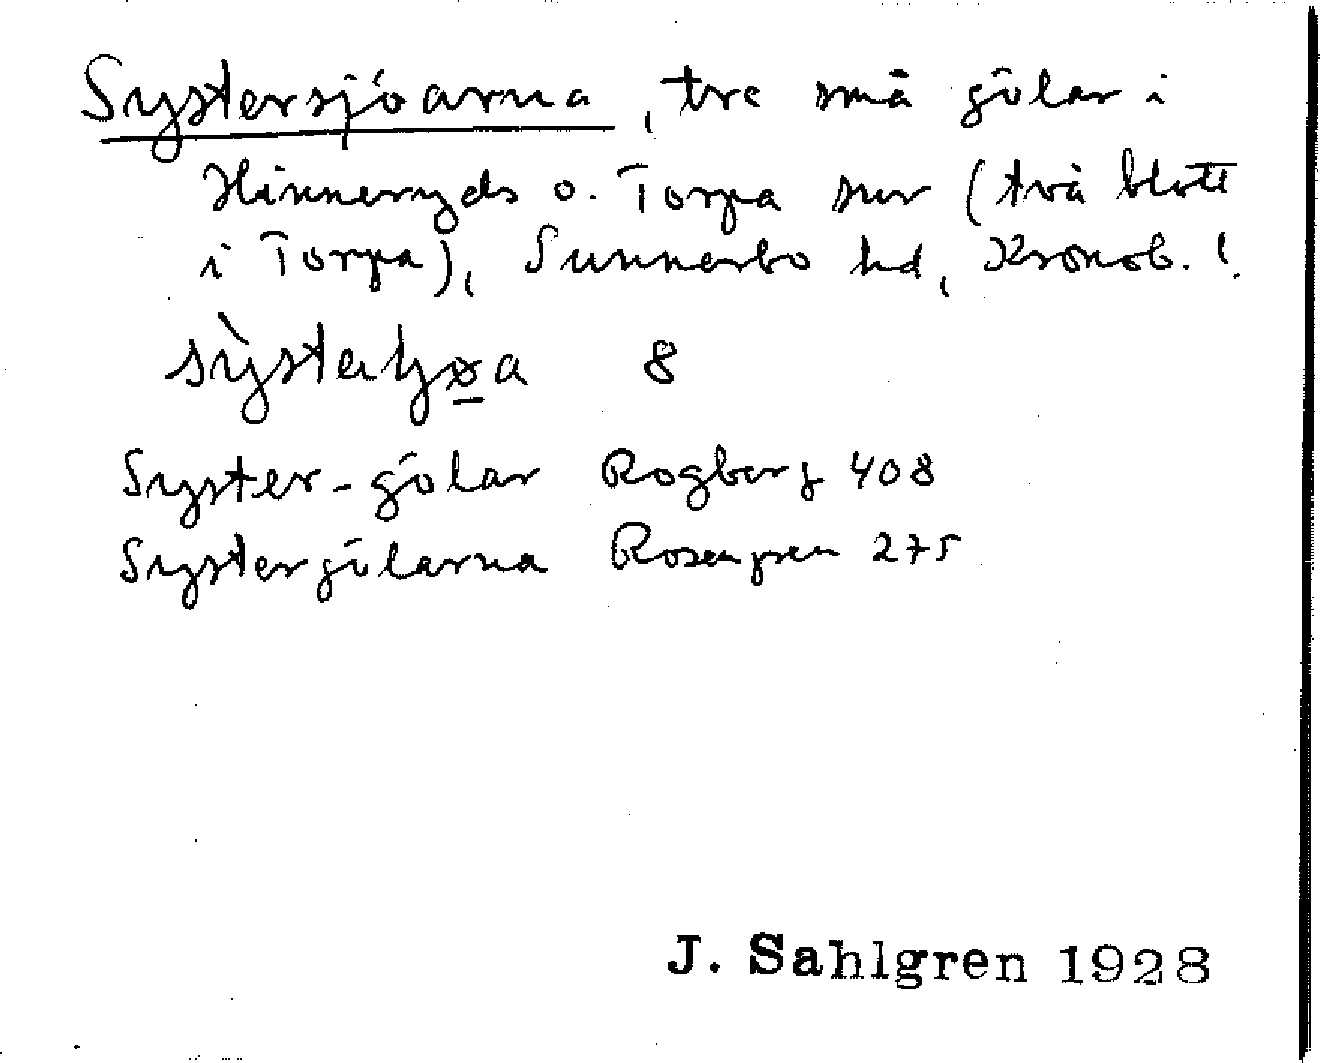 Systersjöarna, tre små gölar i
Hinneryds o. Torpa snr (två blott
i Torpa), Sunnerbo hd, Kronob. l.
8
Syster-gölar Rogberg 408
Systergölarna Rosengren 275
J. Sahlgren 1928